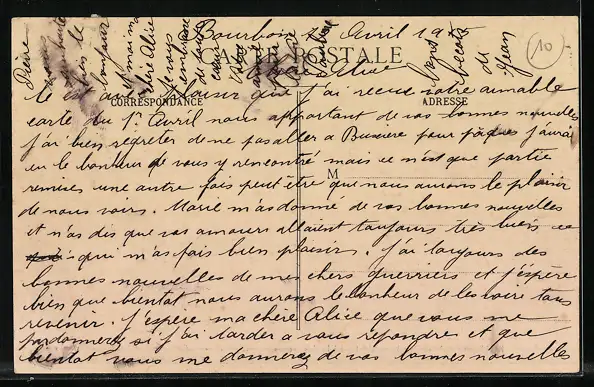 Bourbon Avril 19
CARTE POSTALE
CORRESPONDANCE
ADRESSE
M
10
Jean
plaisir que j'ai recue votre aimable
carte du 1r Avril nous apportant de vos bonnes nouvelles
j'ai bien regreter de ne pas aller a Buxiere pour pâques j'aurai
eu le bonheur de vous y rencontré mais ce n'est que partie
remises une autre fois peut être que nous aurons le plaisir
de nous voir. Marie m'as donné de vos bonnes nouvelles
et n'as dis que vos amours allaient toujours très bien ce
qui m'as fais bien plaisir. j'ai toujours des
bonnes nouvelles de mes chers guerriers et j'espère
bien que bientot nous aurons le bonheur de les voire tous
revenir. j'espère ma chère Alice que vous me
pardonnerez si j'ai tarder a vous repondre et que
bientot vous me donnerez de vos bonnes nouvelles